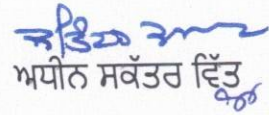 ਅਧੀਨ ਸਕੱਤਰ ਵਿੱਤ